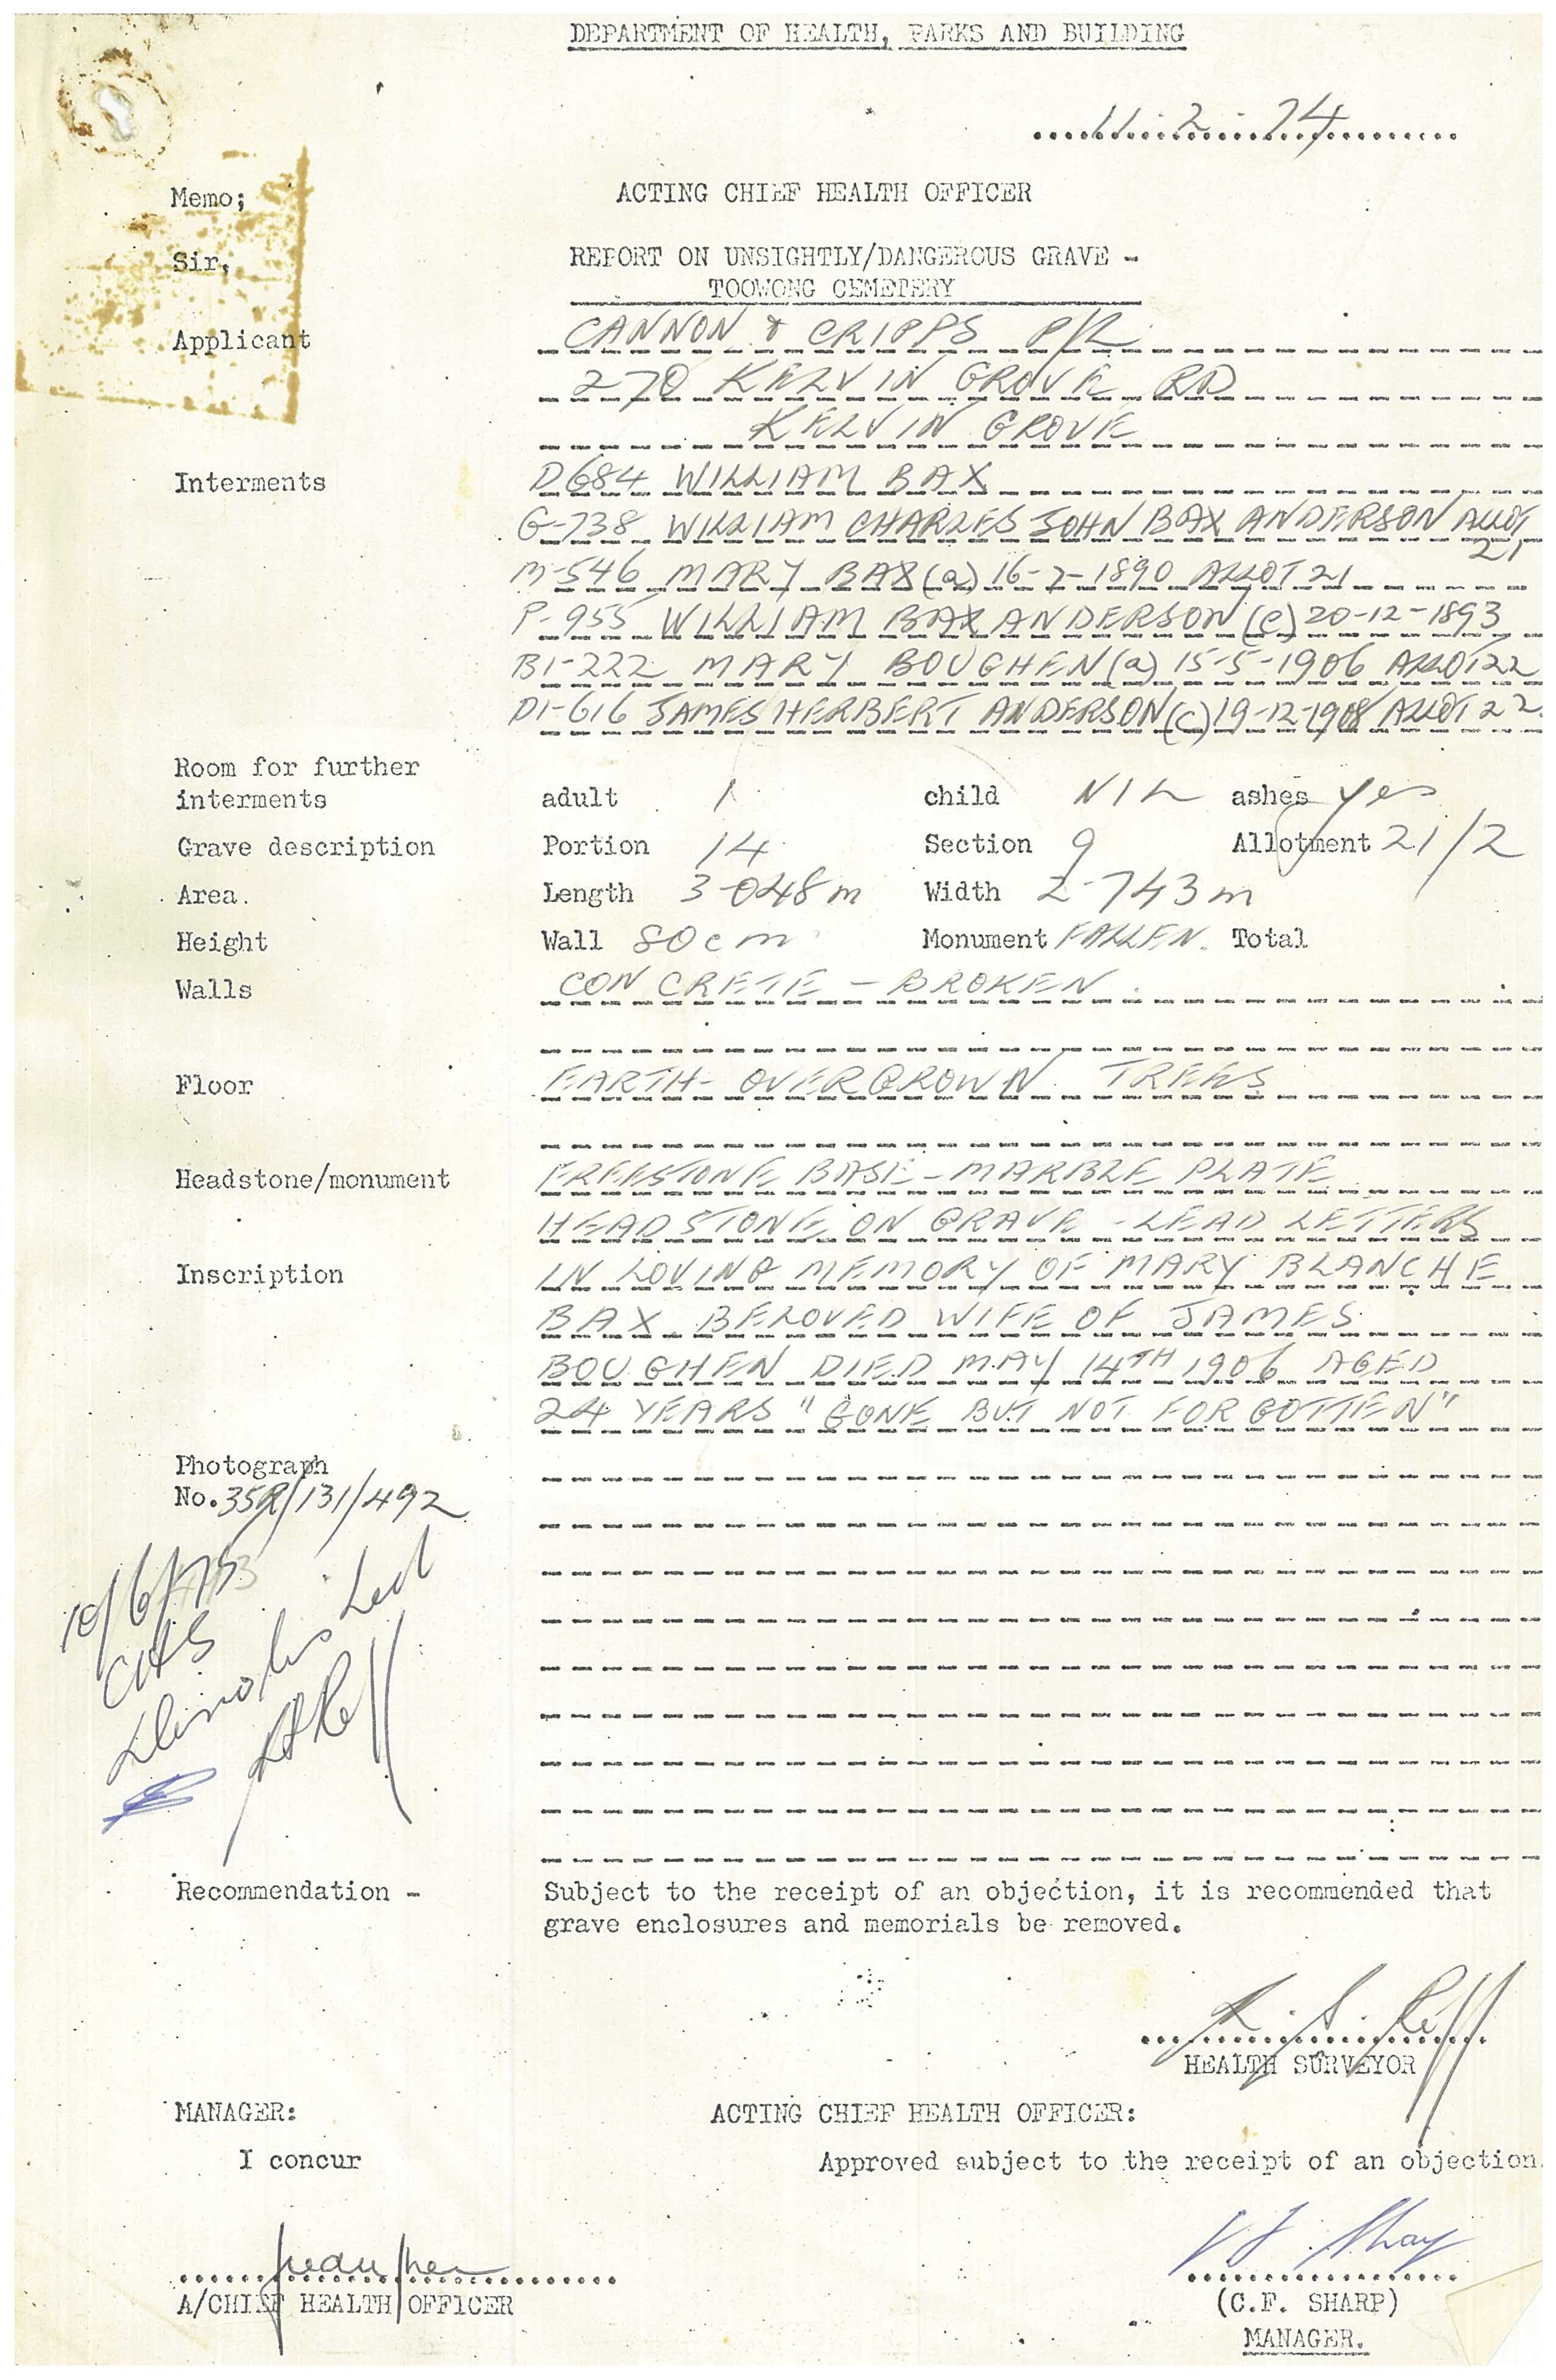 DEPARTMENT OF HEALTH, PARKS AND BUILDING
11-2-74
Memo; ACTING CHIEF HEALTH OFFICER
Sir, REPORT ON UNSIGHTLY/DANGEROUS GRAVE -
TOOWONG CEMETERY
Applicant CANNON & CRIPPS P/L
270 KELVIN GROVE RD
KELVIN GROVE
Interments D684 WILLIAM BAX
G-738 WILLIAM CHARLES JOHN BAX ANDERSON ALLOT
21
M-546 MARY BAX (a) 16-7-1890 ALLOT 21
P-955 WILLIAM BAX ANDERSON (c) 20-12-1893
B1-222 MARY BOUGHEN (a) 15-5-1906 ALLOT 22
D1-616 JAMES HERBERT ANDERSON (c) 19-12-1908 ALLOT 22
Room for further
interments adult 1 child NIL ashes yes
Grave description Portion 14 Section 9 Allotment 21/2
Area. Length 3-048m Width 2-743m
Height Wall 80cm Monument FALLEN. Total
Walls CONCRETE - BROKEN.
Floor EARTH - OVERGROWN. TREES
Headstone/monument FREESTONE BASE - MARBLE PLATE
HEADSTONE ON GRAVE - LEAD LETTERS
Inscription IN LOVING MEMORY OF MARY BLANCHE
BAX BELOVED WIFE OF JAMES
BOUGHEN DIED MAY 14TH 1906 AGED
24 YEARS "GONE BUT NOT FORGOTTEN"
Photograph
No. 35R/131/492
10/6/75
Recommendation - Subject to the receipt of an objection, it is recommended that
grave enclosures and memorials be removed.
HEALTH SURVEYOR
MANAGER: ACTING CHIEF HEALTH OFFICER:
I concur Approved subject to the receipt of an objection.
A/CHIEF HEALTH OFFICER (C.F. SHARP)
MANAGER.